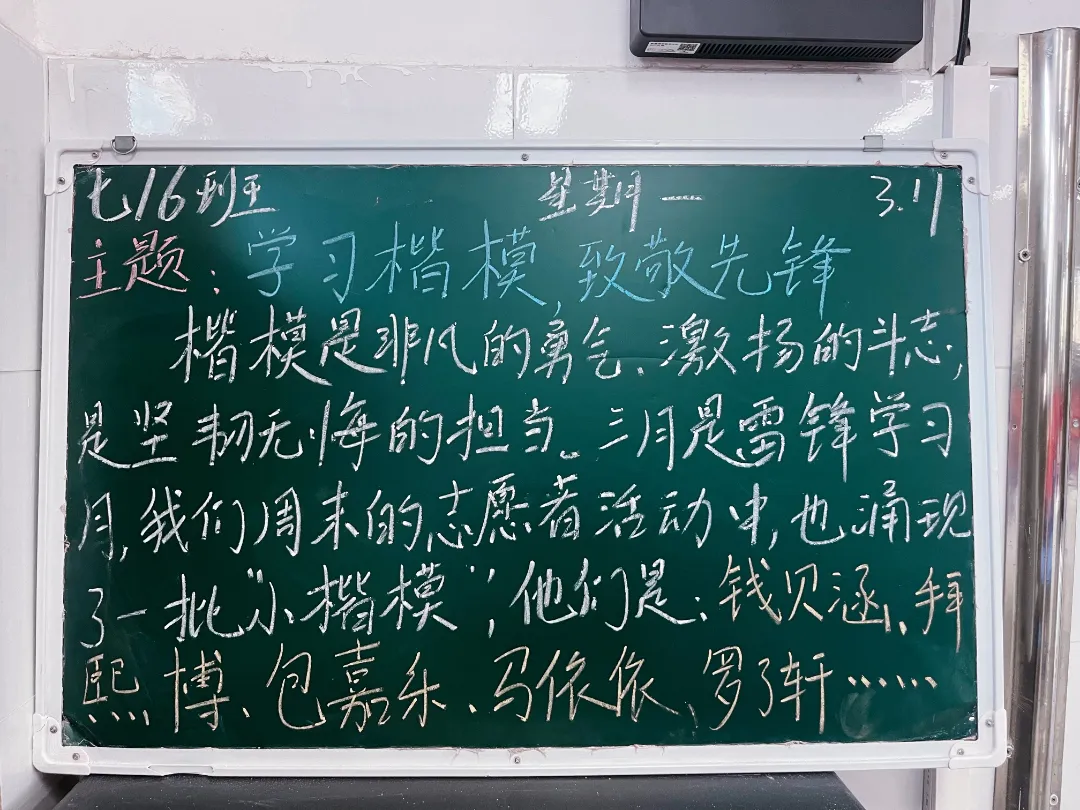 七16班 星期一 3.11
主题：学习楷模,致敬先锋
楷模是非凡的勇气、激扬的斗志,
是坚韧无悔的担当。三月是雷锋学习
月,我们周末的志愿者活动中,也涌现
了一批“小楷模”,他们是：钱贝涵、拜
熙博、包嘉乐、马依依、罗子轩……